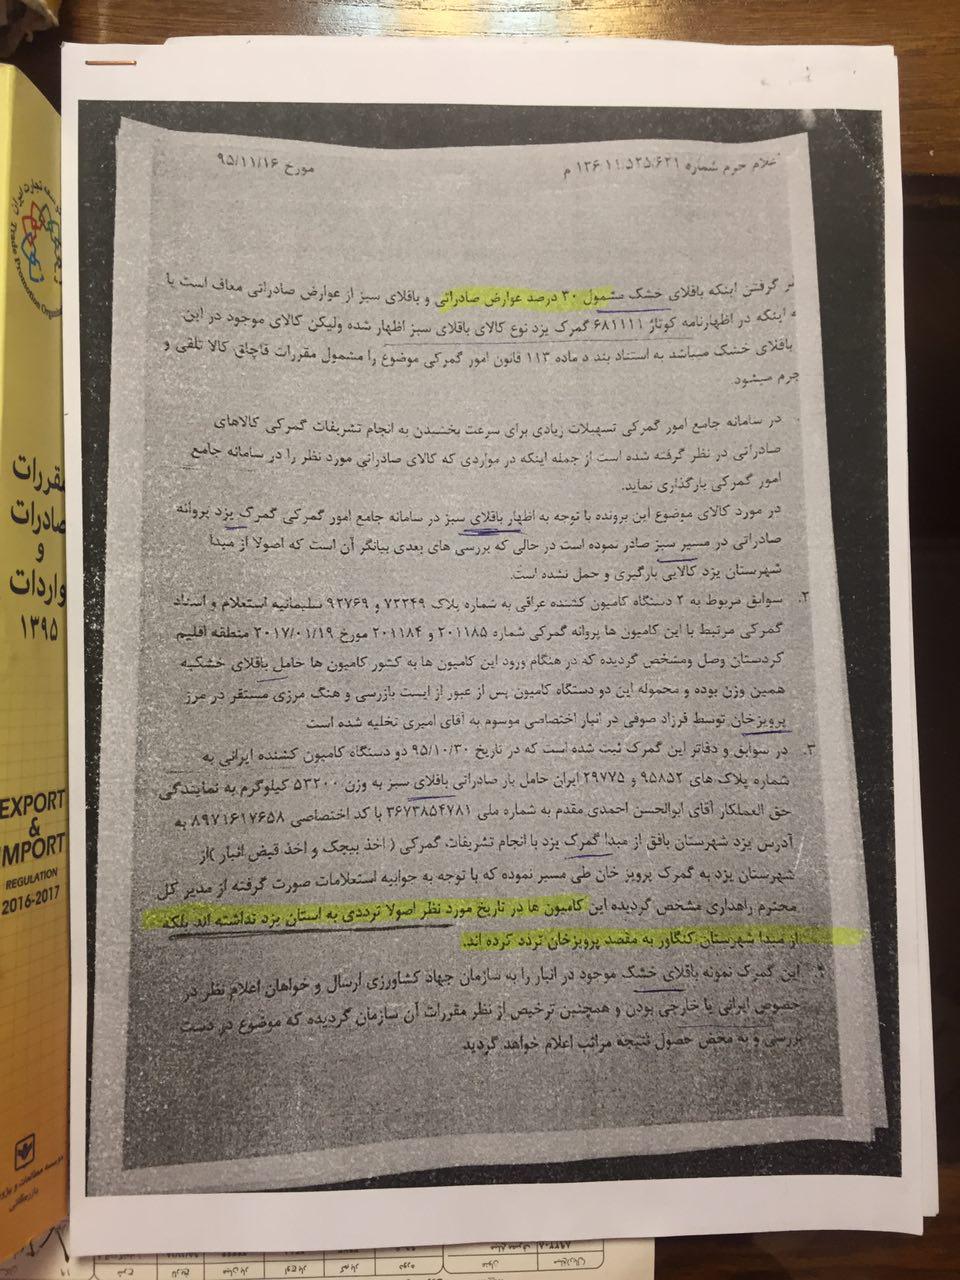 اعلام جرم شماره ۱۳۶۱۱.۵۲۵/۶۲۱ م
مورخ ۹۵/۱۱/۱۶
نر گرفتن اینکه باقلای خشک مشمول ۳۰ درصد عوارض صادراتی و باقلای سبز از عوارض صادراتی معاف است با
ه اینکه در اظهارنامه کوتاژ ۶۸۱۱۱۱ گمرک یزد نوع کالای باقلای سبز اظهار شده ولیکن کالای موجود در این
باقلای خشک میباشد به استناد بند د ماده ۱۱۳ قانون امور گمرکی موضوع را مشمول مقررات قاچاق کالا تلقی و
جرم میشود.
در سامانه جامع امور گمرکی تسهیلات زیادی برای سرعت بخشیدن به انجام تشریفات گمرکی کالاهای
صادراتی در نظر گرفته شده است از جمله اینکه در مواردی که کالای صادراتی مورد نظر را در سامانه جامع
امور گمرکی بارگذاری نماید.
در مورد کالای موضوع این پرونده با توجه به اظهار باقلای سبز در سامانه جامع امور گمرکی گمرک یزد پروانه
صادراتی در مسیر سبز صادر نموده است در حالی که بررسی های بعدی بیانگر آن است که اصولا از مبدا
شهرستان یزد کالایی بارگیری و حمل نشده است.
۲. سوابق مربوط به ۲ دستگاه کامیون کشنده عراقی به شماره پلاک ۷۳۳۴۹ و ۹۲۷۶۹ سلیمانیه استعلام و اسناد
گمرکی مرتبط با این کامیون ها پروانه گمرکی شماره ۲۰۱۱۸۵ و ۲۰۱۱۸۴ مورخ ۲۰۱۷/۰۱/۱۹ منطقه اقلیم
کردستان وصل ومشخص گردیده که در هنگام ورود این کامیون ها به کشور کامیون ها حامل باقلای خشکبه
همین وزن بوده و محموله این دو دستگاه کامیون پس از عبور از ایست بازرسی و هنگ مرزی مستقر در مرز
پرویزخان توسط فرزاد صوفی در انبار اختصاصی موسوم به آقای امیری تخلیه شده است
۳. در سوابق و دفاتر این گمرک ثبت شده است که در تاریخ ۹۵/۱۰/۳۰ دو دستگاه کامیون کشنده ایرانی به
شماره پلاک های ۹۵۸۵۲ و ۲۹۷۷۵ ایران حامل بار صادراتی باقلای سبز به وزن ۵۳۲۰۰ کیلوگرم به نمایندگی
حق العملکار آقای ابوالحسن احمدی مقدم به شماره ملی ۳۶۷۳۸۵۴۷۸۱ با کد اختصاصی ۸۹۷۱۶۱۷۶۵۸ به
آدرس یزد شهرستان بافق از مبدا گمرک یزد با انجام تشریفات گمرکی ( اخذ بیجک و اخذ قبض انبار )از
شهرستان یزد به گمرک پرویز خان طی مسیر نموده که با توجه به جوابیه استعلامات صورت گرفته از مدیر کل
محترم راهداری مشخص گردیده این کامیون ها در تاریخ مورد نظر اصولا ترددی به استان یزد نداشته اند بلکه
از مبدا شهرستان کنگاور به مقصد پرویزخان تردد کرده اند.
این گمرک نمونه باقلای خشک موجود در انبار را به سازمان جهاد کشاورزی ارسال و خواهان اعلام نظر در
خصوص ایرانی یا خارجی بودن و همچنین ترخیص از نظر مقررات آن سازمان گردیده که موضوع در دست
بررسی و به محض حصول نتیجه مراتب اعلام خواهد گردید
Trade Promotion
مقررات
صادرات
و
واردات
۱۳۹۵
EXPORT
&
IMPORT
REGULATION
2016-2017
بازرگانی